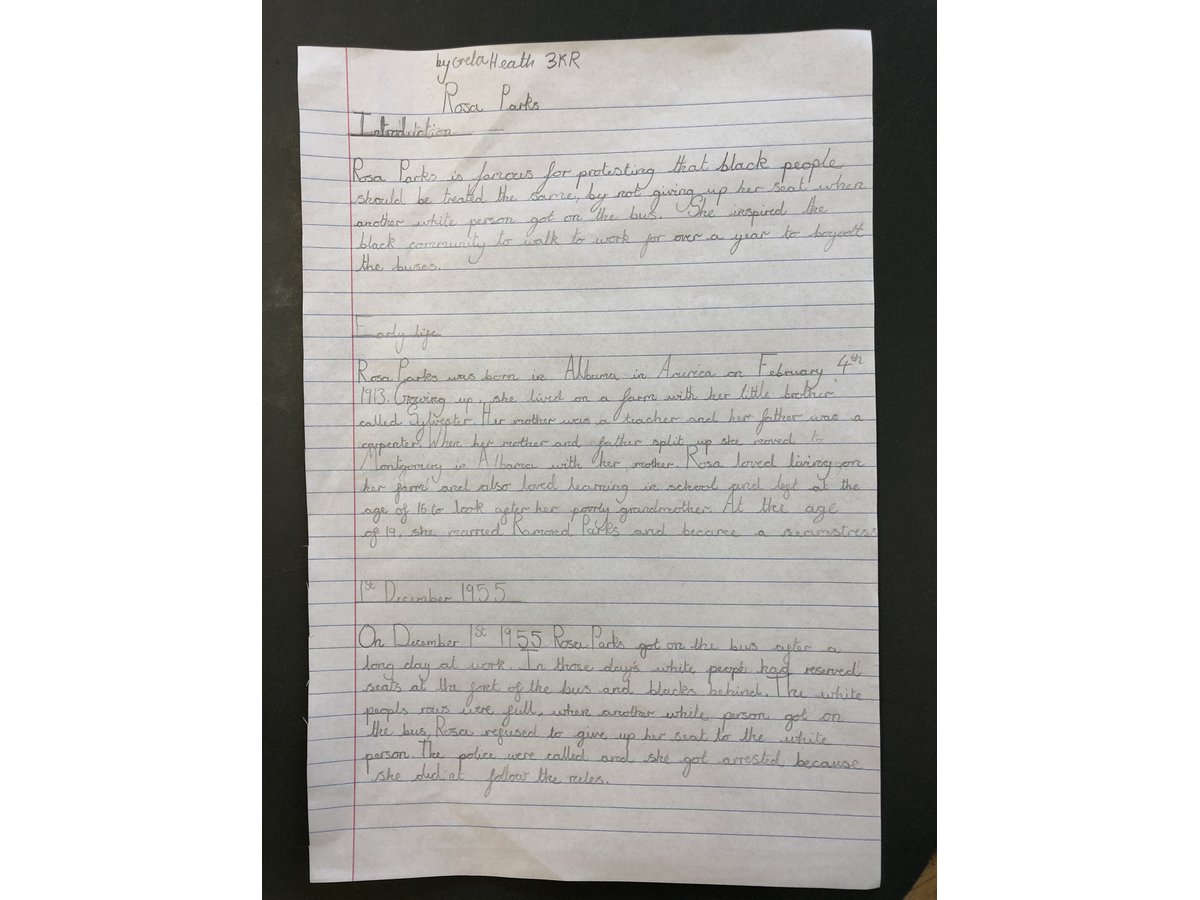 by Greta Heath 3KR
Rosa Parks
Introduction
Rosa Parks is famous for protesting that black people
should be treated the same, by not giving up her seat when
another white person got on the bus. She inspired the
black community to walk to work for over a year to boycott
the buses.
Early life
Rosa Parks was born in Albama in America on February 4th
1913. Growing up, she lived on a farm with her little brother
called Sylvester. Her mother was a teacher and her father was a
carpenter. When her mother and father split up she moved to
Montgomery in Albama with her mother. Rosa loved living on
her farm and also loved learning in school and left at the
age of 16 to look after her poorly grandmother. At the age
of 19, she married Ramond Parks and became a seamstress
1st December 1955
On December 1st 1955 Rosa Parks got on the bus after a
long day at work. In those days white people had reserved
seats at the font of the bus and blacks behind. The white
peopls rows were full, when another white person got on
the bus, Rosa refused to give up her seat to the white
person. The police were called and she got arrested because
she didint follow the rules.